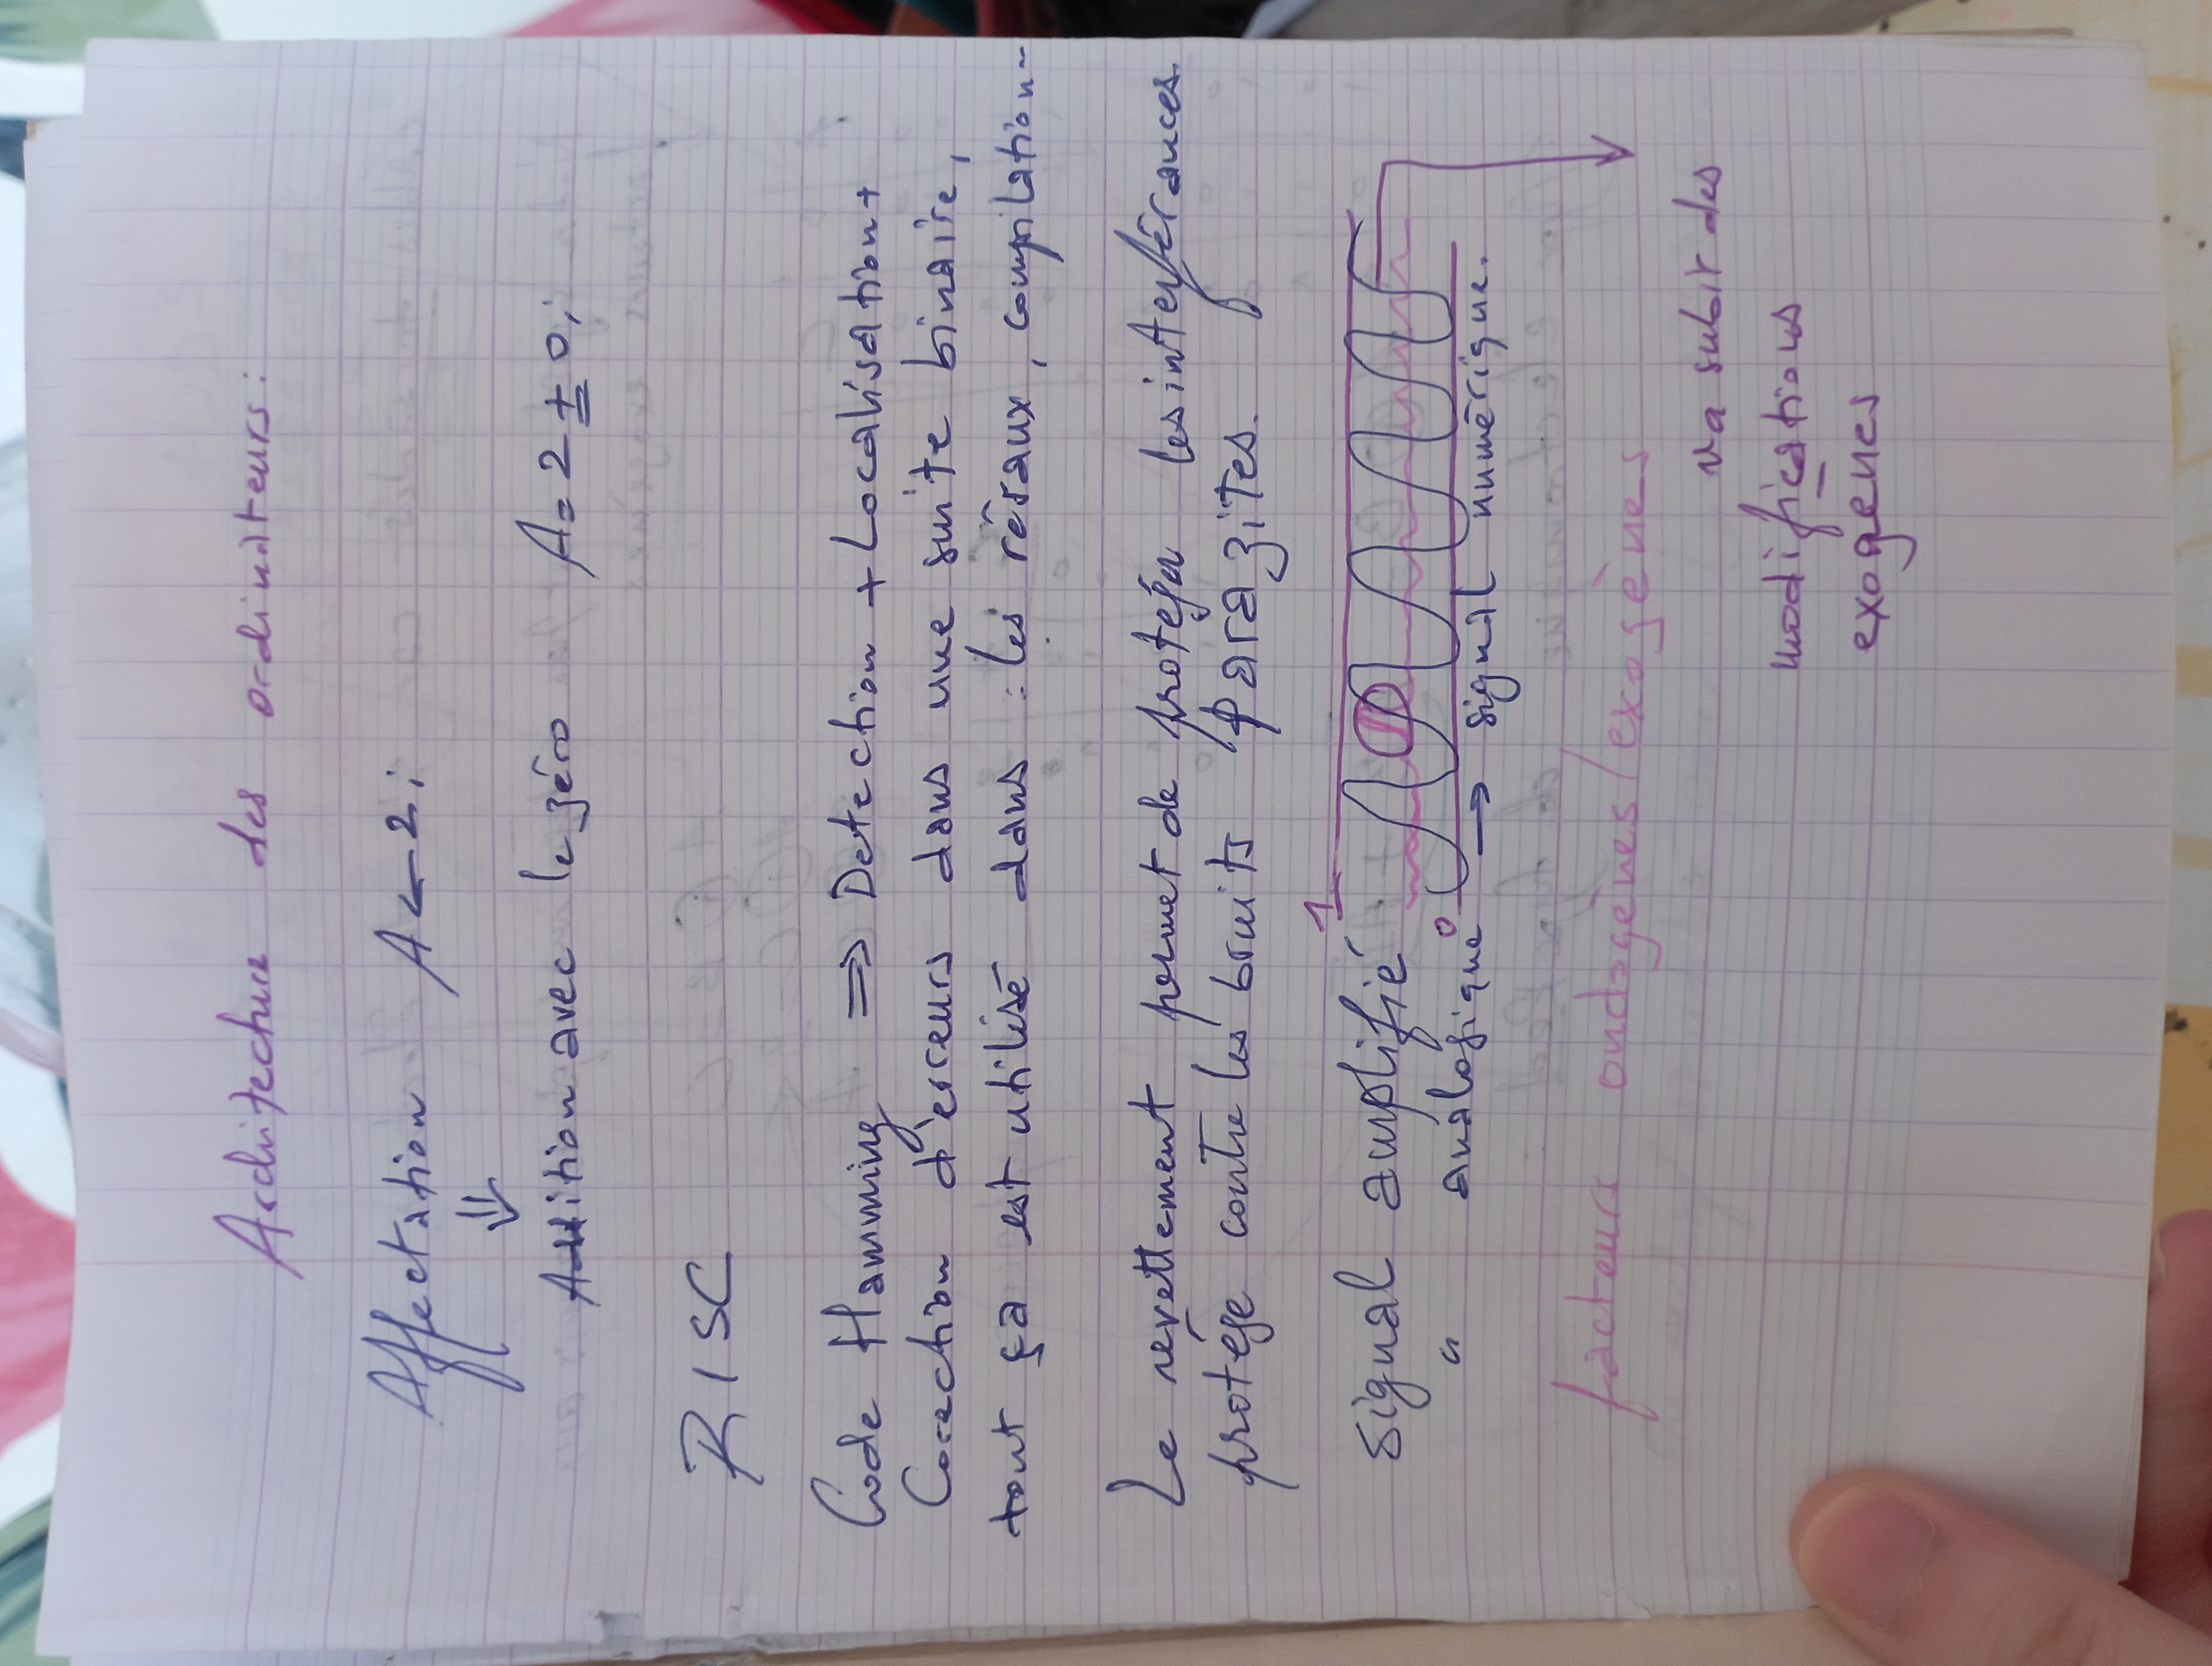 Architecture des ordinateurs :
Affectation A ← 2;
⇓
Addition avec le zéro A = 2 + 0;
RISC
Code Hamming ⇒ Detection + Localisation +
Corection d'erreurs dans une suite binaire,
tout ça est utilisé dans : les résaux, compilation-
Le revettement permet de protéger les interférances
protége contre les bruits parazites.
1
signal amplifié :
0
" analogique → signal numérique.
facteurs ondogènes/exogènes
va subir des
modifications
exogenes